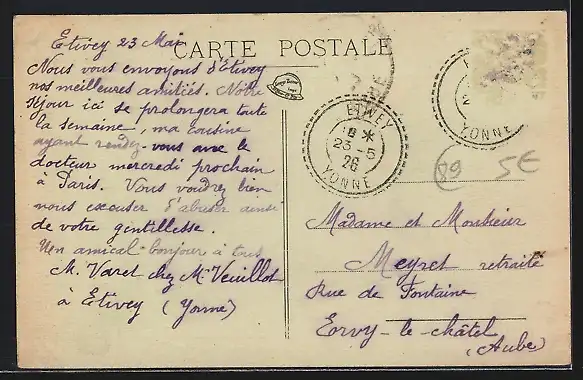 Etivey 23 Mai
CARTE POSTALE
Nous vous envoyons d'Etivey
nos meilleures amitiés. Notre
séjour ici se prolongera toute
la semaine, ma cousine
ayant rendez-vous avec le
docteur mercredi prochain
à Paris. Vous voudrez bien
nous excuser d'abuser ainsi
de votre gentillesse.
Un amical bonjour à tous
M. Varet chez Mr Veuillot
à Etivey (Yonne)
ETIVEY
23-5
26
YONNE
YONNE
89 5€
Madame et Monsieur
Meyret retraité
Rue de Fontaine
Ervy-le-châtel
(Aube)